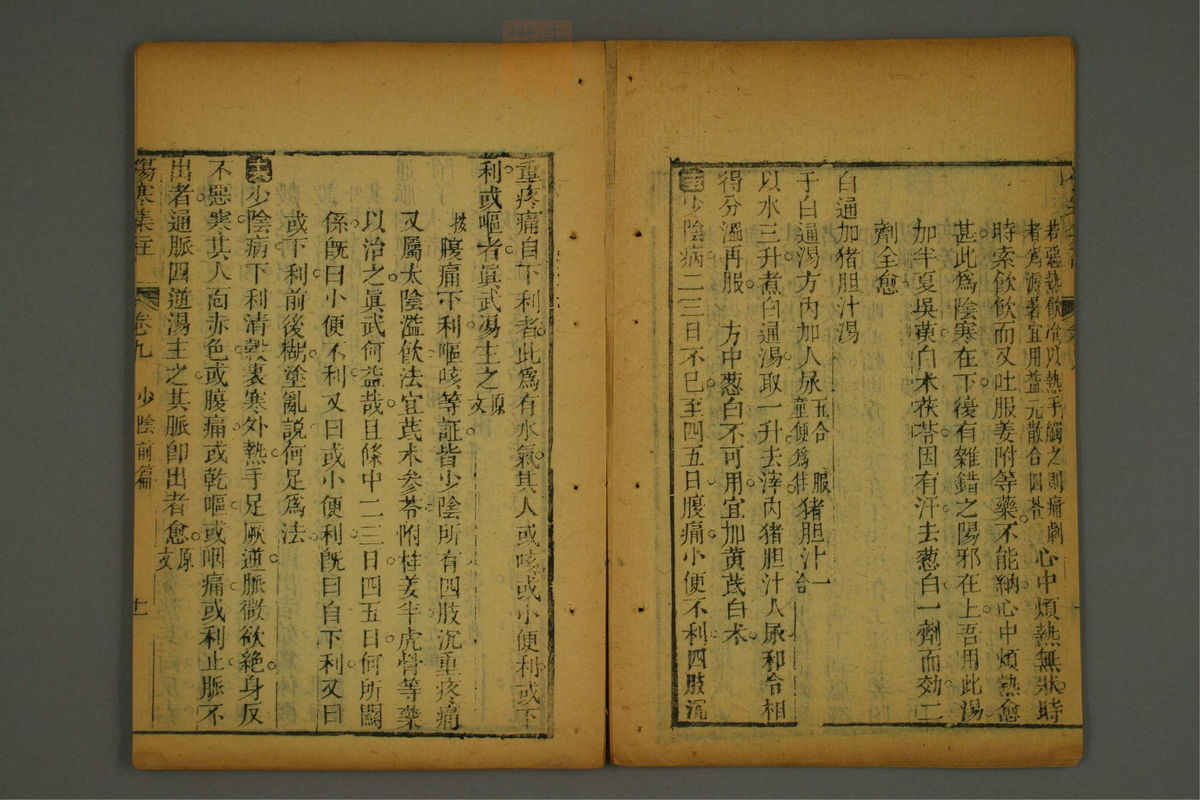 若惡熱飲冷以熱手觸之則痛劇
者爲源著宜用益元散合四苓
心中煩熱無狀時
時索飲飲而又吐服姜附等藥不能納心中煩熱愈
甚此爲陰寒在下復有雜錯之陽邪在上吾用此湯
加半夏吳萸白朮茯苓因有汗去葱白一劑而効二
劑全愈
白通加猪胆汁湯
于白通湯方內加人尿五合童便爲佳 服猪胆汁一合
以水三升煮白通湯取一升去滓內猪胆汁人尿和合相
得分溫再服 方中葱白不可用宜加黃茋白朮
少陰病二三日不已至四五日腹痛小便不利四肢沉
重疼痛自下利者此爲有水氣其人或咳或小便利或下
利或嘔者眞武湯主之原文
按腹痛下利嘔咳等証皆少陰所有四肢沉重疼痛
又屬太陰濫飮法宜茋朮参苓附桂姜半虎骨等藥
以治之眞武何益哉且條中二三日四五日何所關
係旣曰小便不利又曰或小便利旣曰自下利又曰
或下利前後糊塗亂說何足爲法
少陰病下利清穀裏寒外熱手足厥逆脈微欲絶身反
不惡寒其人面赤色或腹痛或乾嘔或咽痛或利止脈不
出者通脈四逆湯主之其脈卽出者愈原文
傷寒集註 卷九 少陰前篇 十一